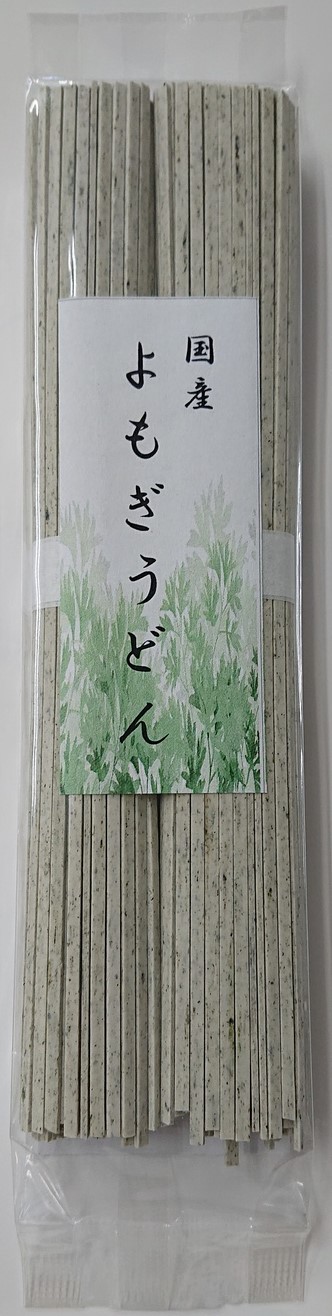 国産
よもぎうどん